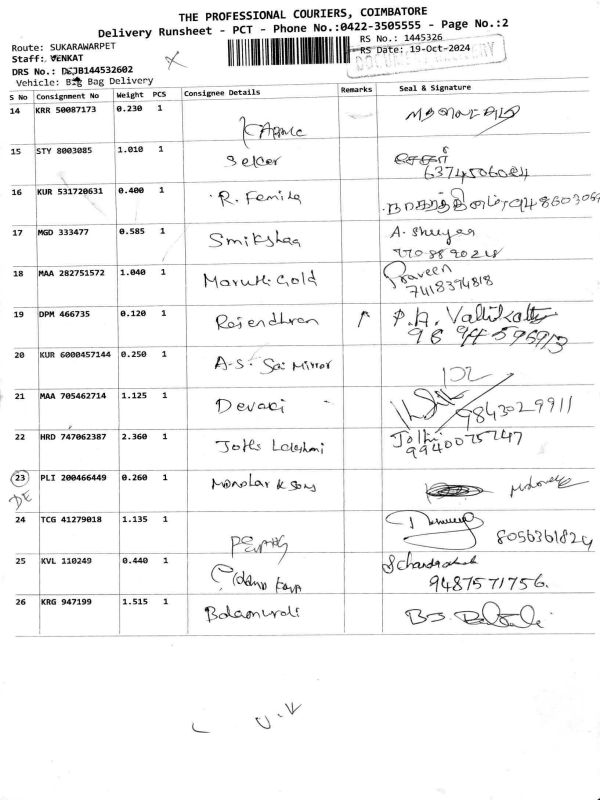 THE PROFESSIONAL COURIERS, COIMBATORE
Delivery Runsheet - PCT - Phone No.:0422-3505555 - Page No.:2
Route: SUKARAWARPET
RS No.: 1445326
Staff: VENKAT
RS Date: 19-Oct-2024
DRS No.: DEJB144532602
Vehicle: Big Bag Delivery
S No Consignment No Weight PCS Consignee Details Remarks Seal & Signature
14 KRR 50087173 0.230 1
15 STY 8003085 1.010 1 Seker
6374506084
16 KUR 531720631 0.400 1 R. Femila
17 MGD 333477 0.585 1 Smikshaa A. Shreyaa
18 MAA 282751572 1.040 1 Maruthi Gold Praveen
7418394818
19 DPM 466735 0.120 1 Rajendhran P.A. Vallikattu
98 94 595913
20 KUR 6000457144 0.250 1 A.S. Sai Mirror
21 MAA 705462714 1.125 1 Devaki 9843029911
22 HRD 747062387 2.360 1 Jothi Lakshmi Jothi
9940075247
23 PLI 200466449 0.260 1 Manohar K Sons
DE
24 TCG 41279018 1.135 1 8056361824
25 KVL 110249 0.440 1
9487571756.
26 KRG 947199 1.515 1 Balamurali